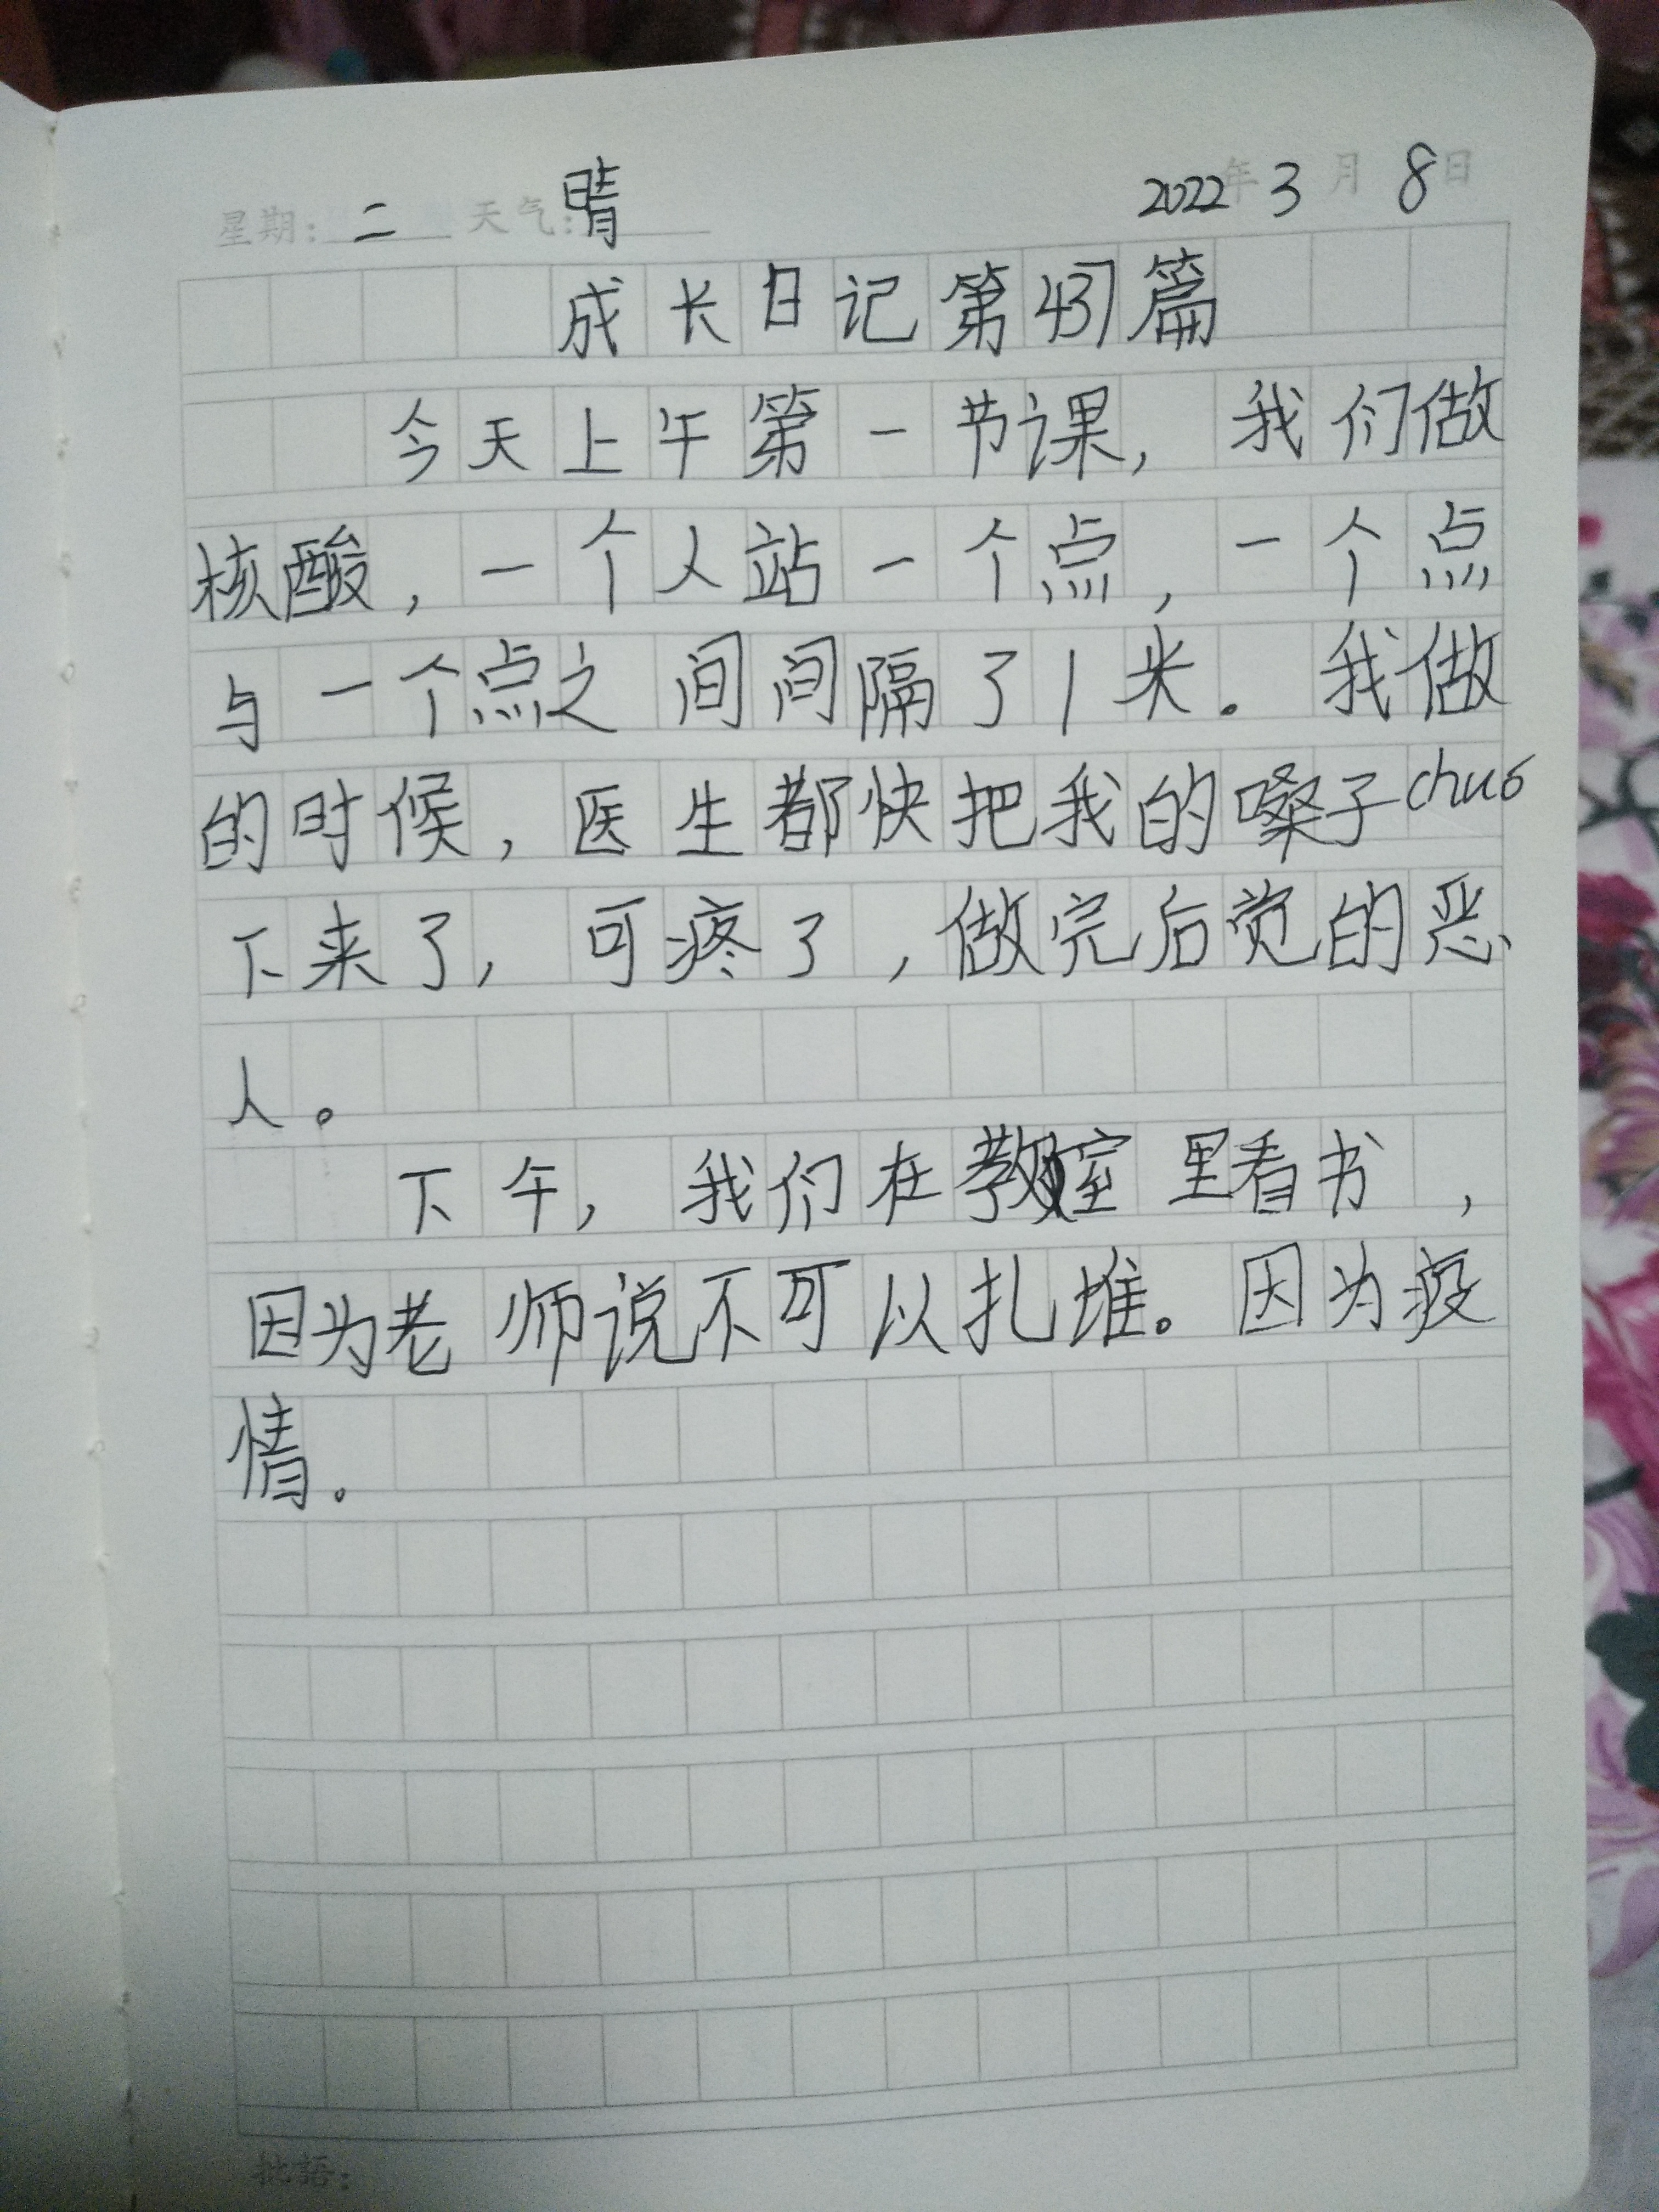 星期：二 天气：晴 2022年3月8日
成长日记第437篇
今天上午第一节课，我们做
核酸，一个人站一个点，一个点
与一个点之间间隔了1米。我做
的时候，医生都快把我的嗓子chuō
下来了，可疼了，做完后觉的恶
人。
下午，我们在教室里看书，
因为老师说不可以扎堆。因为疫
情。
批語：